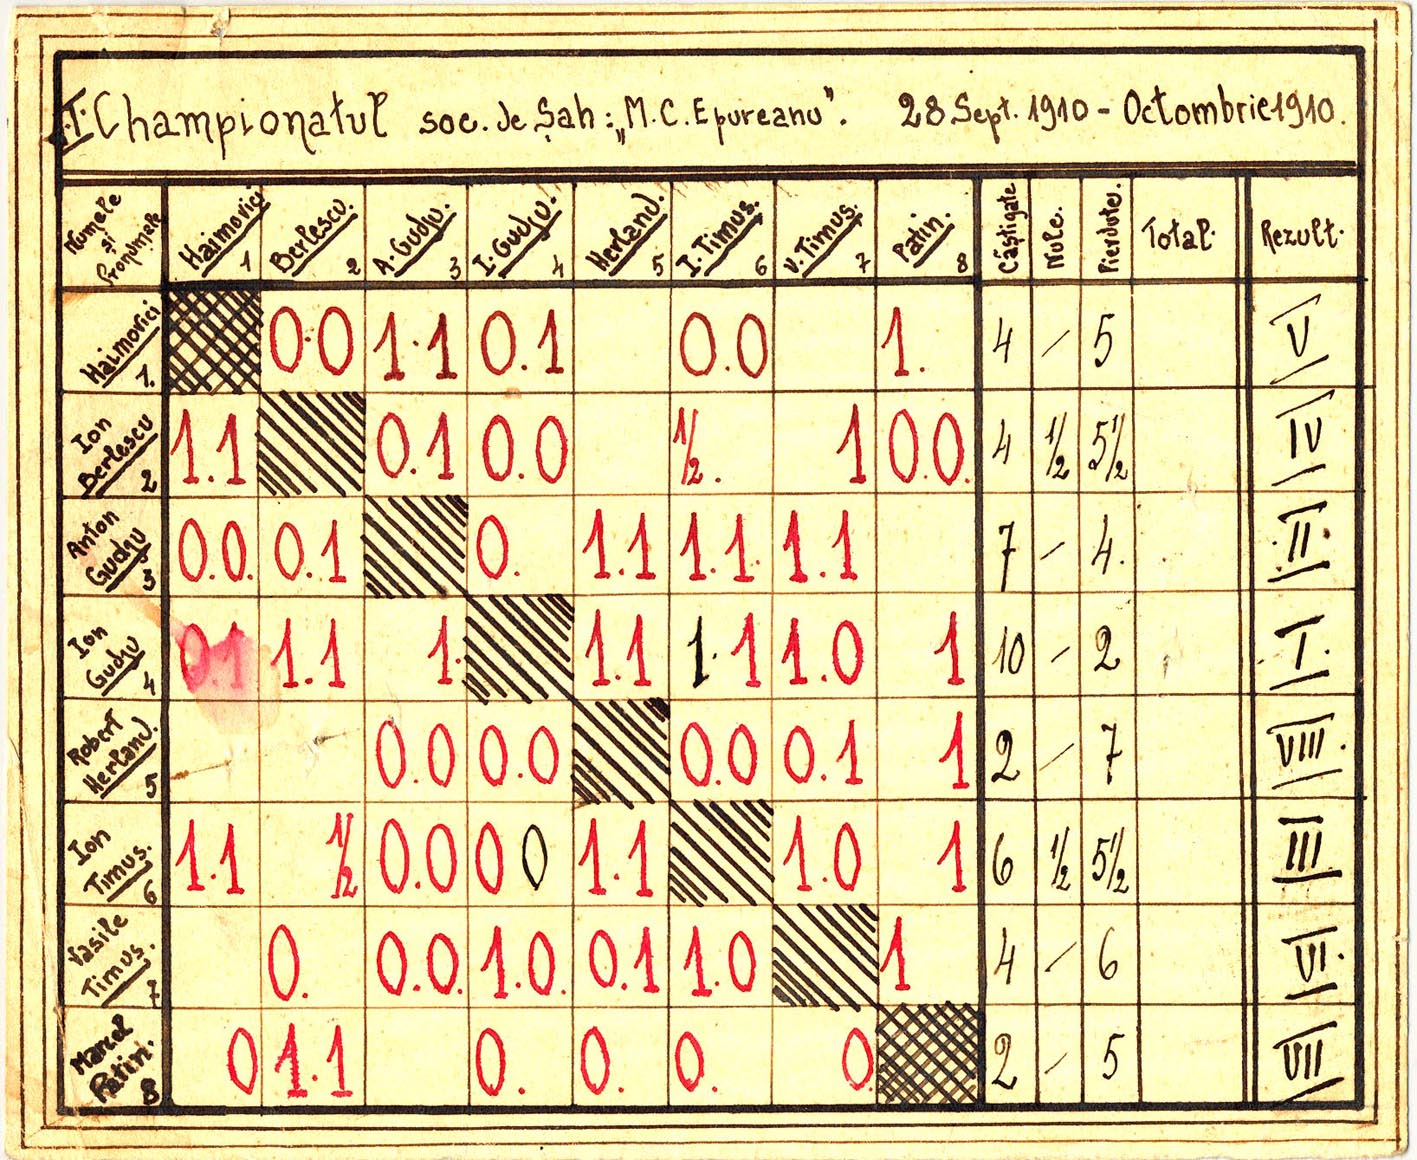 I. Championatul soc. de Șah: „M. C. Epureanu". 28 Sept. 1910 - Octombrie 1910.
Numele și Pronumele Haimovici 1 Berlescu. 2 A. Gudju. 3 I. Gudju. 4 Herland. 5 I. Timus. 6 V. Timus. 7 Patin. 8 Câștigate Nule. Pierdute. Total. Rezult.
Haimovici 1. 0.0 1.1 0.1 0.0 1. 4 - 5 V
Ion Berlescu 2 1.1 0.1 0.0 1/2. 1 0.0. 4 1/2 5 1/2 IV
Anton Gudju 3 0.0. 0.1 0. 1.1 1.1 1.1 7 - 4. II
Ion Gudju 4 0.1 1.1 1. 1.1 1.1 1.0 1 10 - 2 I.
Robert Herland. 5 0.0 0.0 0.0 0.1 1 2 - 7 VIII.
Ion Timus. 6 1.1 1/2 0.0 0 0 1.1 1.0 1 6 1/2 5 1/2 III
Vasile Timus. 7 0. 0.0. 1.0. 0.1 1.0 1 4 - 6 VI.
Marcel Patin. 8 0 1.1 0. 0. 0. 0. 2 - 5 VII